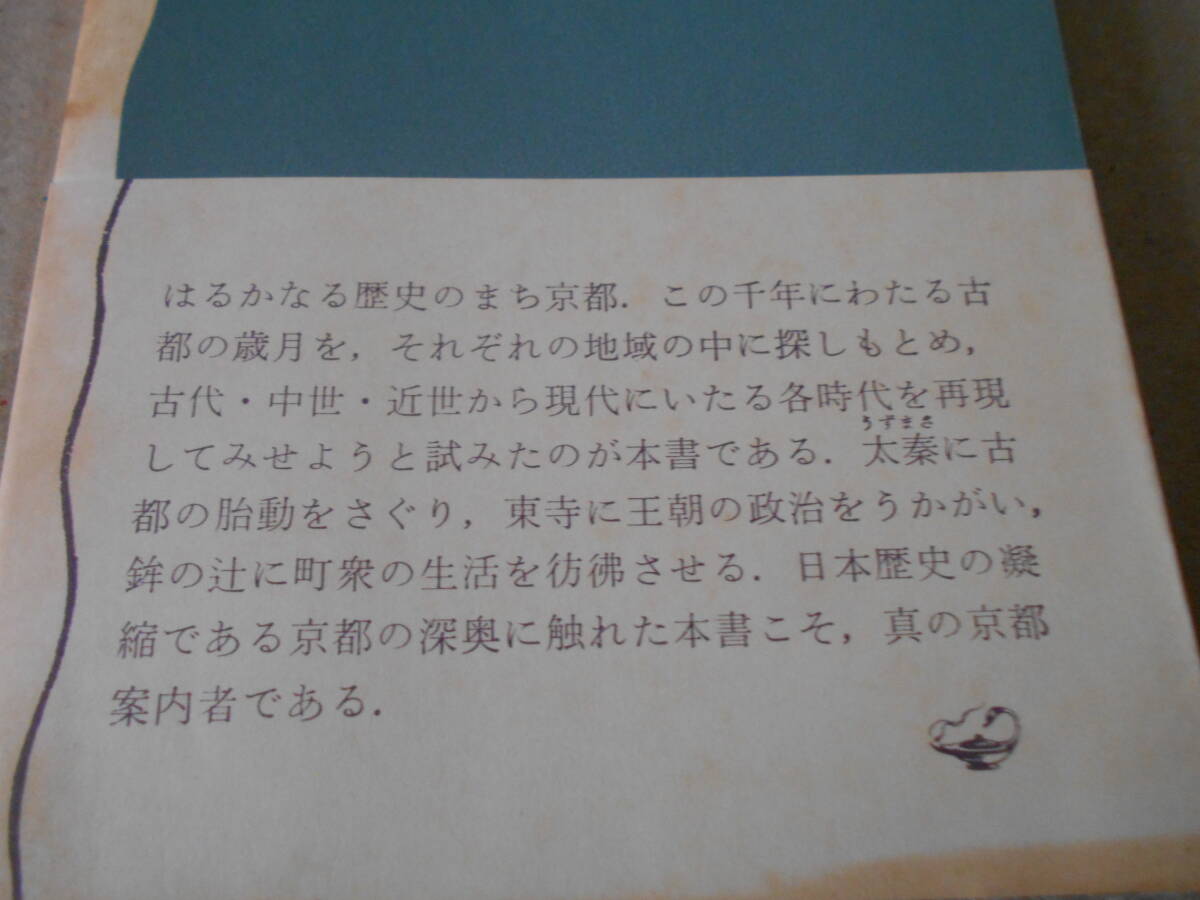 はるかなる歴史のまち京都．この千年にわたる古
都の歳月を，それぞれの地域の中に探しもとめ，
古代・中世・近世から現代にいたる各時代を再現
うずまさ
してみせようと試みたのが本書である．太秦に古
都の胎動をさぐり，東寺に王朝の政治をうかがい，
鉾の辻に町衆の生活を彷彿させる．日本歴史の凝
縮である京都の深奥に触れた本書こそ，真の京都
案内者である．